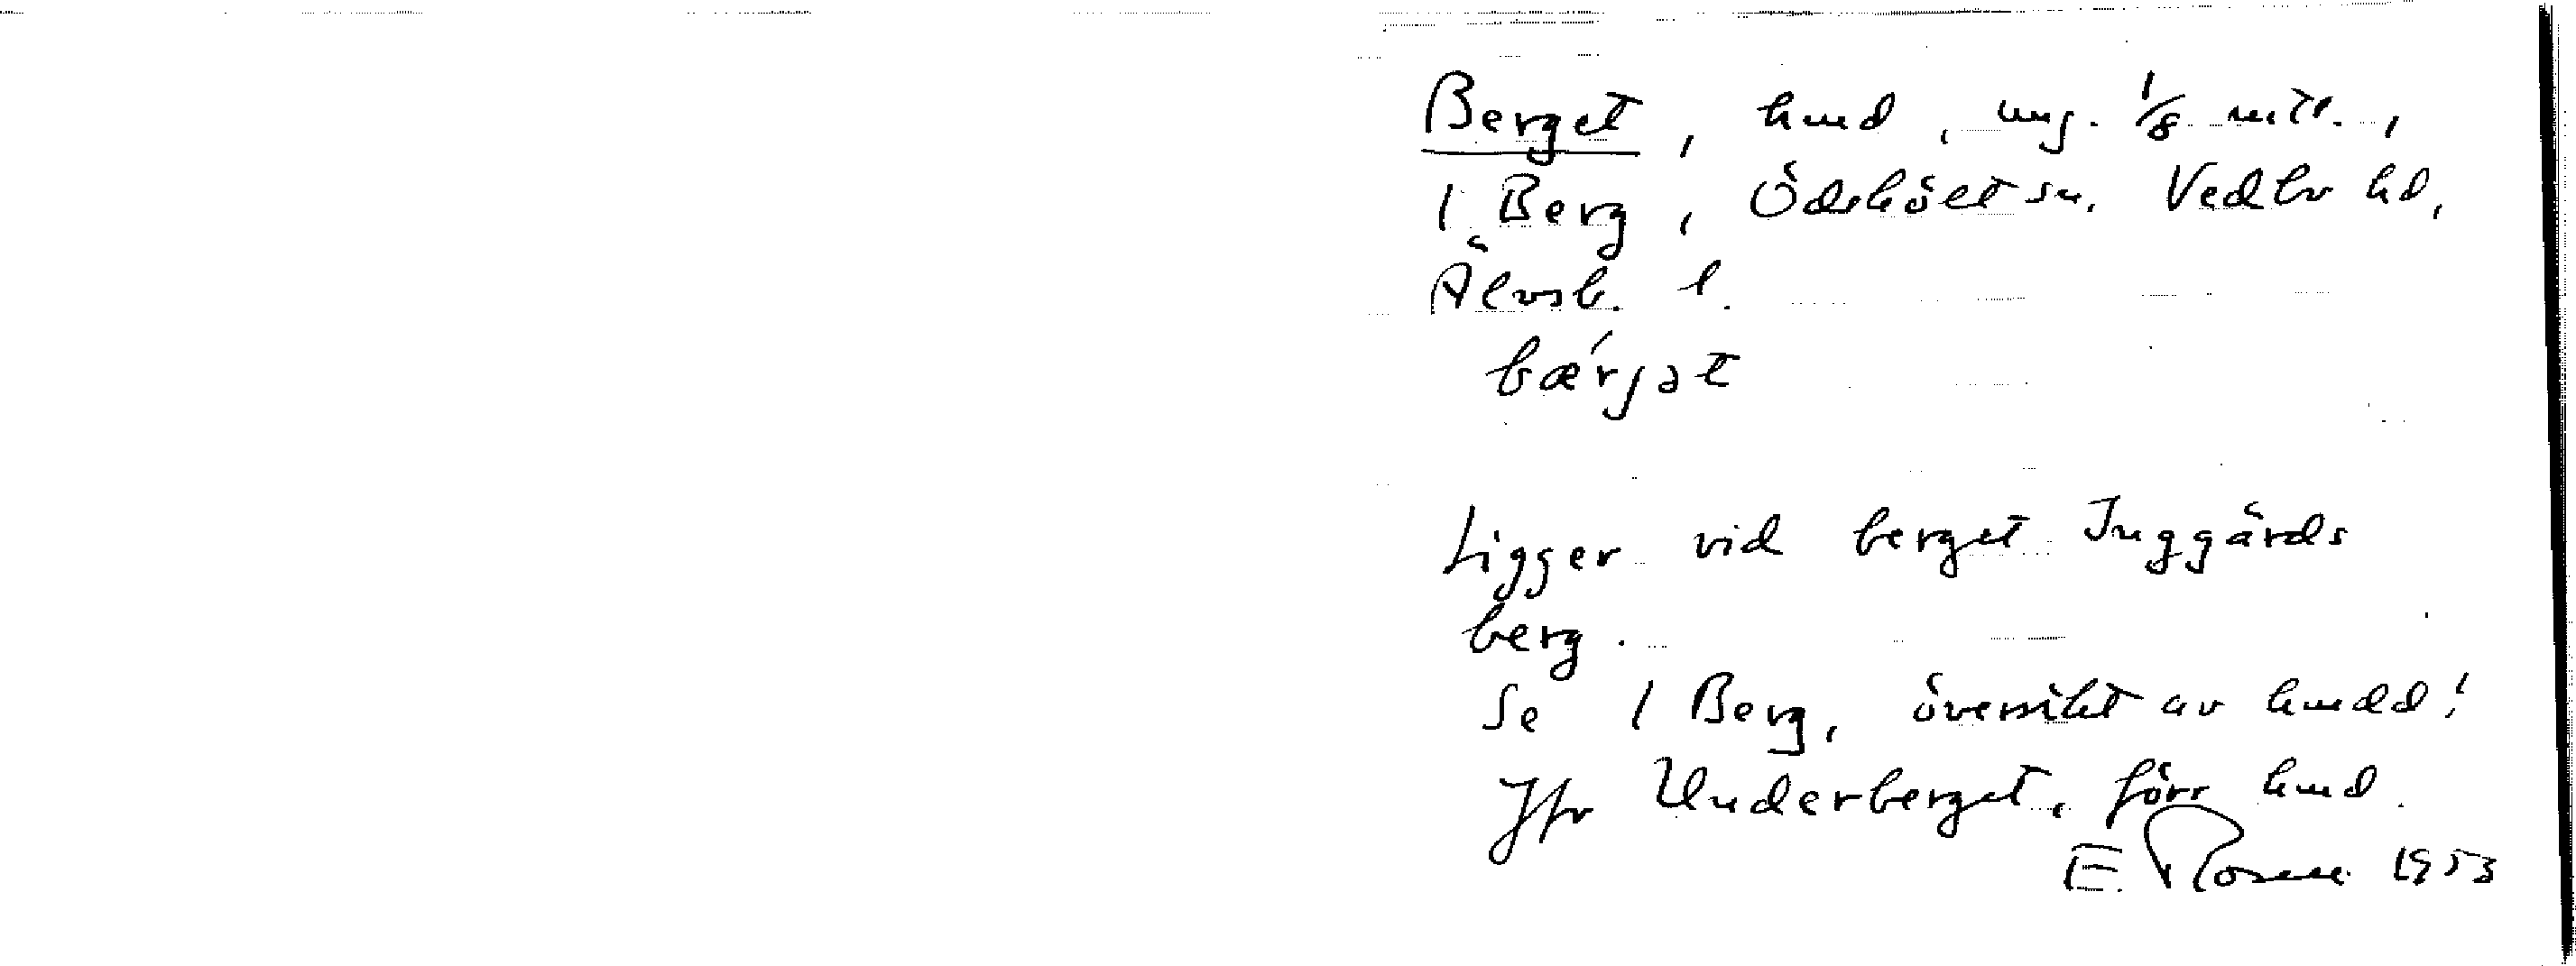 Berget, hmd, ung. 1/8 mtl.,
1 Berg, Ödehölt sn. Vedbo hd,
Älvsb. l.
bæ´rjət
Ligger vid berget Inggärds
berg.
Se 1 Berg, översikt av hmdd!
Jfr Underberget, förr hmd.
E. Rosell 1953